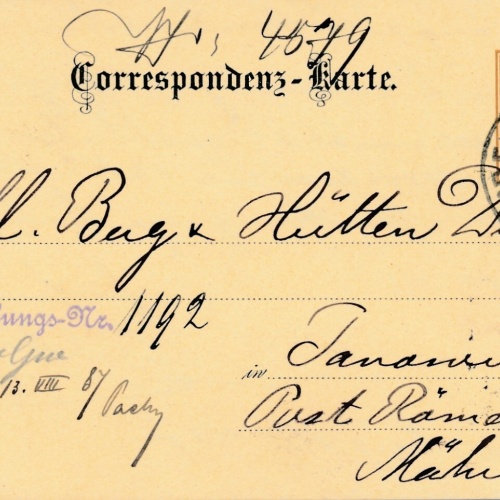 Nr. 4579
Correspondenz-Karte.
l. Berg & Hütten
ungs-Nr. 1192
13. VIII 87
in Janowi
Post Röme
Mähr